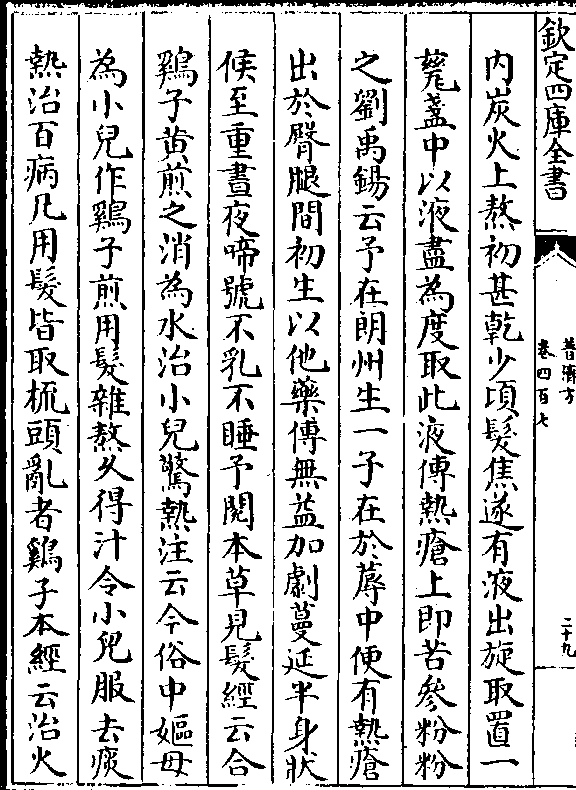 欽定四庫全書
普濟方
卷四百七
二十九
内炭火上熬初甚乾少頃髮焦遂有液出旋取置一
甆盞中以液盡為度取此液傅熱瘡上即苦參粉粉
之劉禹錫云予在朗州生一子在於蓐中便有熱瘡
出於臀腿間初生以他藥傅無益加劇蔓延半身狀
候至重晝夜啼號不乳不睡予閱本草見髮經云合
鷄子黄煎之消為水治小兒驚熱注云今俗中嫗母
為小兒作鷄子煎用髮雜熬乆得汁令小兒服去痰
熱治百病凡用髮皆取梳頭亂者鷄子本經云治火